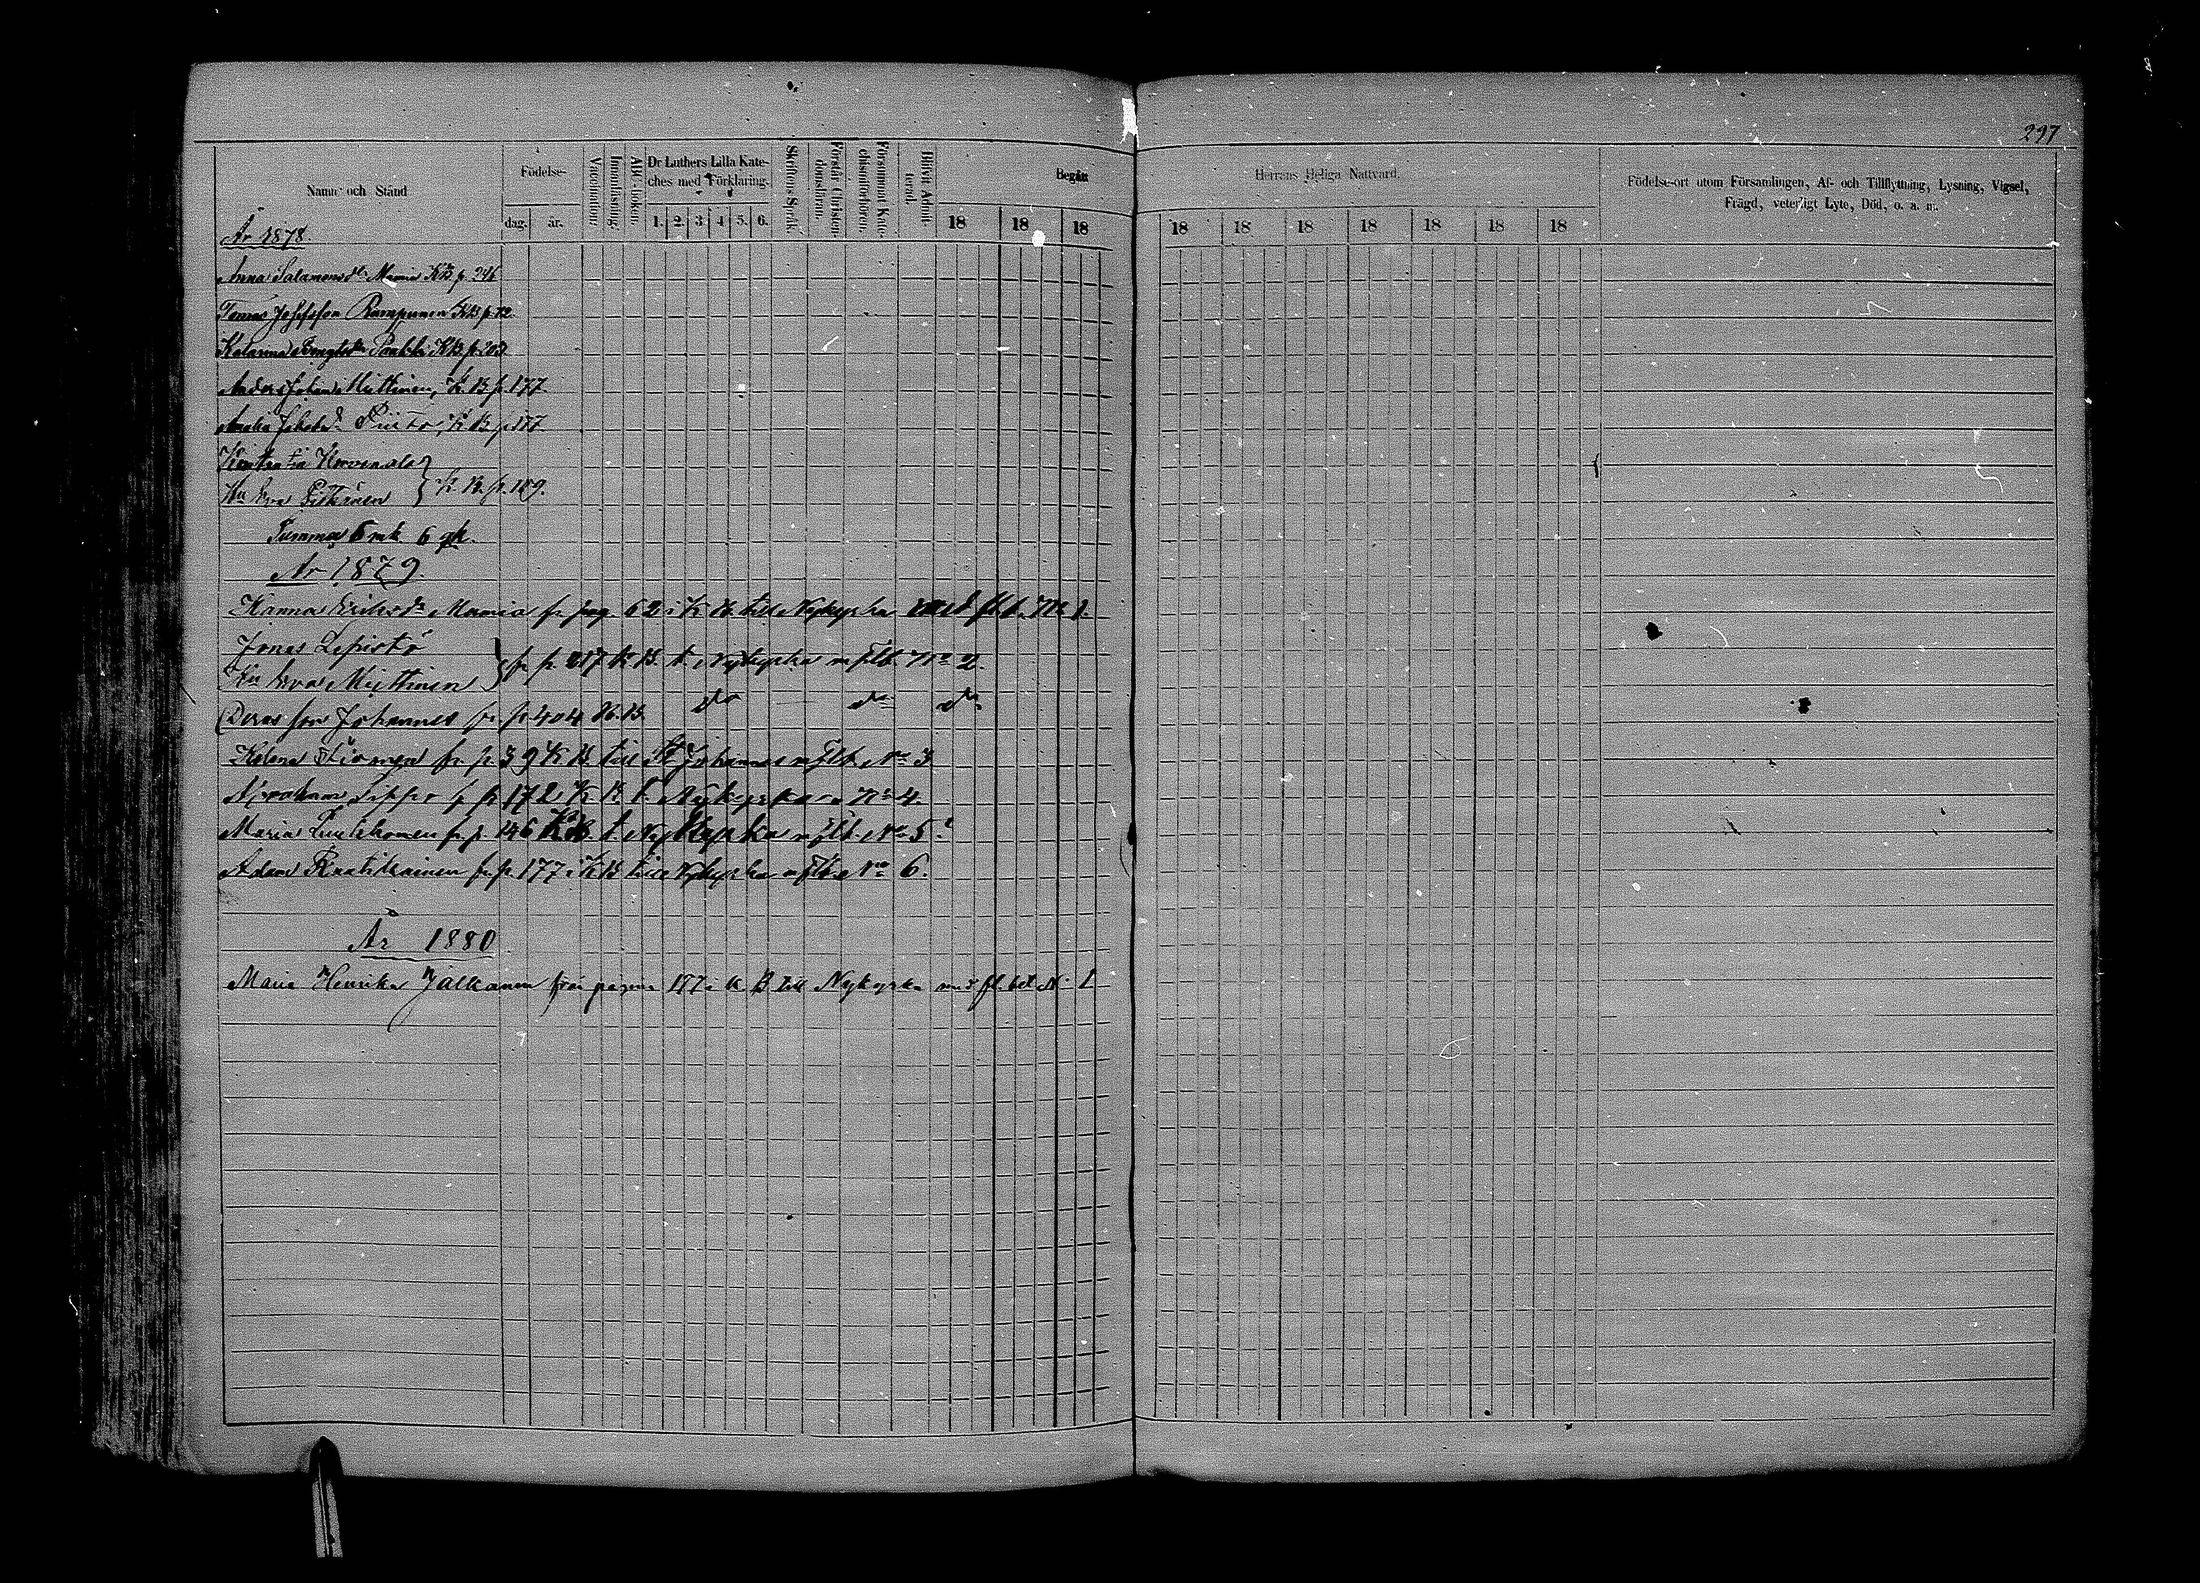 297
Namn och Stånd
Födelse-
dag. år.
Vaccination.
Innanläsning.
ABC-boken.
Dr Luthers Lilla Kate-
ches med Förklaring.
1. 2. 3 4 5. 6.
Skriftens Språk.
Förstår Christen-
domsläran.
Försummat Kate-
chismiförhören.
Blifvit Admit-
terad.
Begått
18 18 18
Herrans Heliga Nattvard.
18 18 18 18 18 18 18
Födelse-ort utom Församlingen, Af- och Tillflyttning, Lysning, Vigsel,
Frägd, veterligt Lyte, Död, o. a. m.
År 1878.
Anna Salamonsdr Mamia KB p. 246
Tomas Josefsson Rampanen KB p. 72
Katarina Paakki KB p. 203
Anders Johan Miettinen, K. B. p. 177.
Amalia K B p 177
Hu Eva K. B. p. 189.
Summa 6 mk 6 qk.
År 1879.
Hanna Eriksdr Mamia fr pag. 62 i K B. till Nykyrka med flb. No 1.
Jonas Lepistö
Hu Eva Miettinen } fr p. 217 K B. t. Nykyrka m flb. No 2.
Deras son Johannes fr p 404 K. B. do do do
Helena fr p 39 K B. till St Johannes m flb. No 3
Abraham Sipper fr p 172 i K. B. t. Nykyrka No 4.
Maria fr p. 146 K B. t Nykyrka m flb. No 5.
Adam Ruatikainen fr p 177 i K B till Nykyrka m flb. No 6.
År 1880
Maria Henrika Jälkanen från pagina 177 i K. B till Nykyrka med fl. bet. N. 1